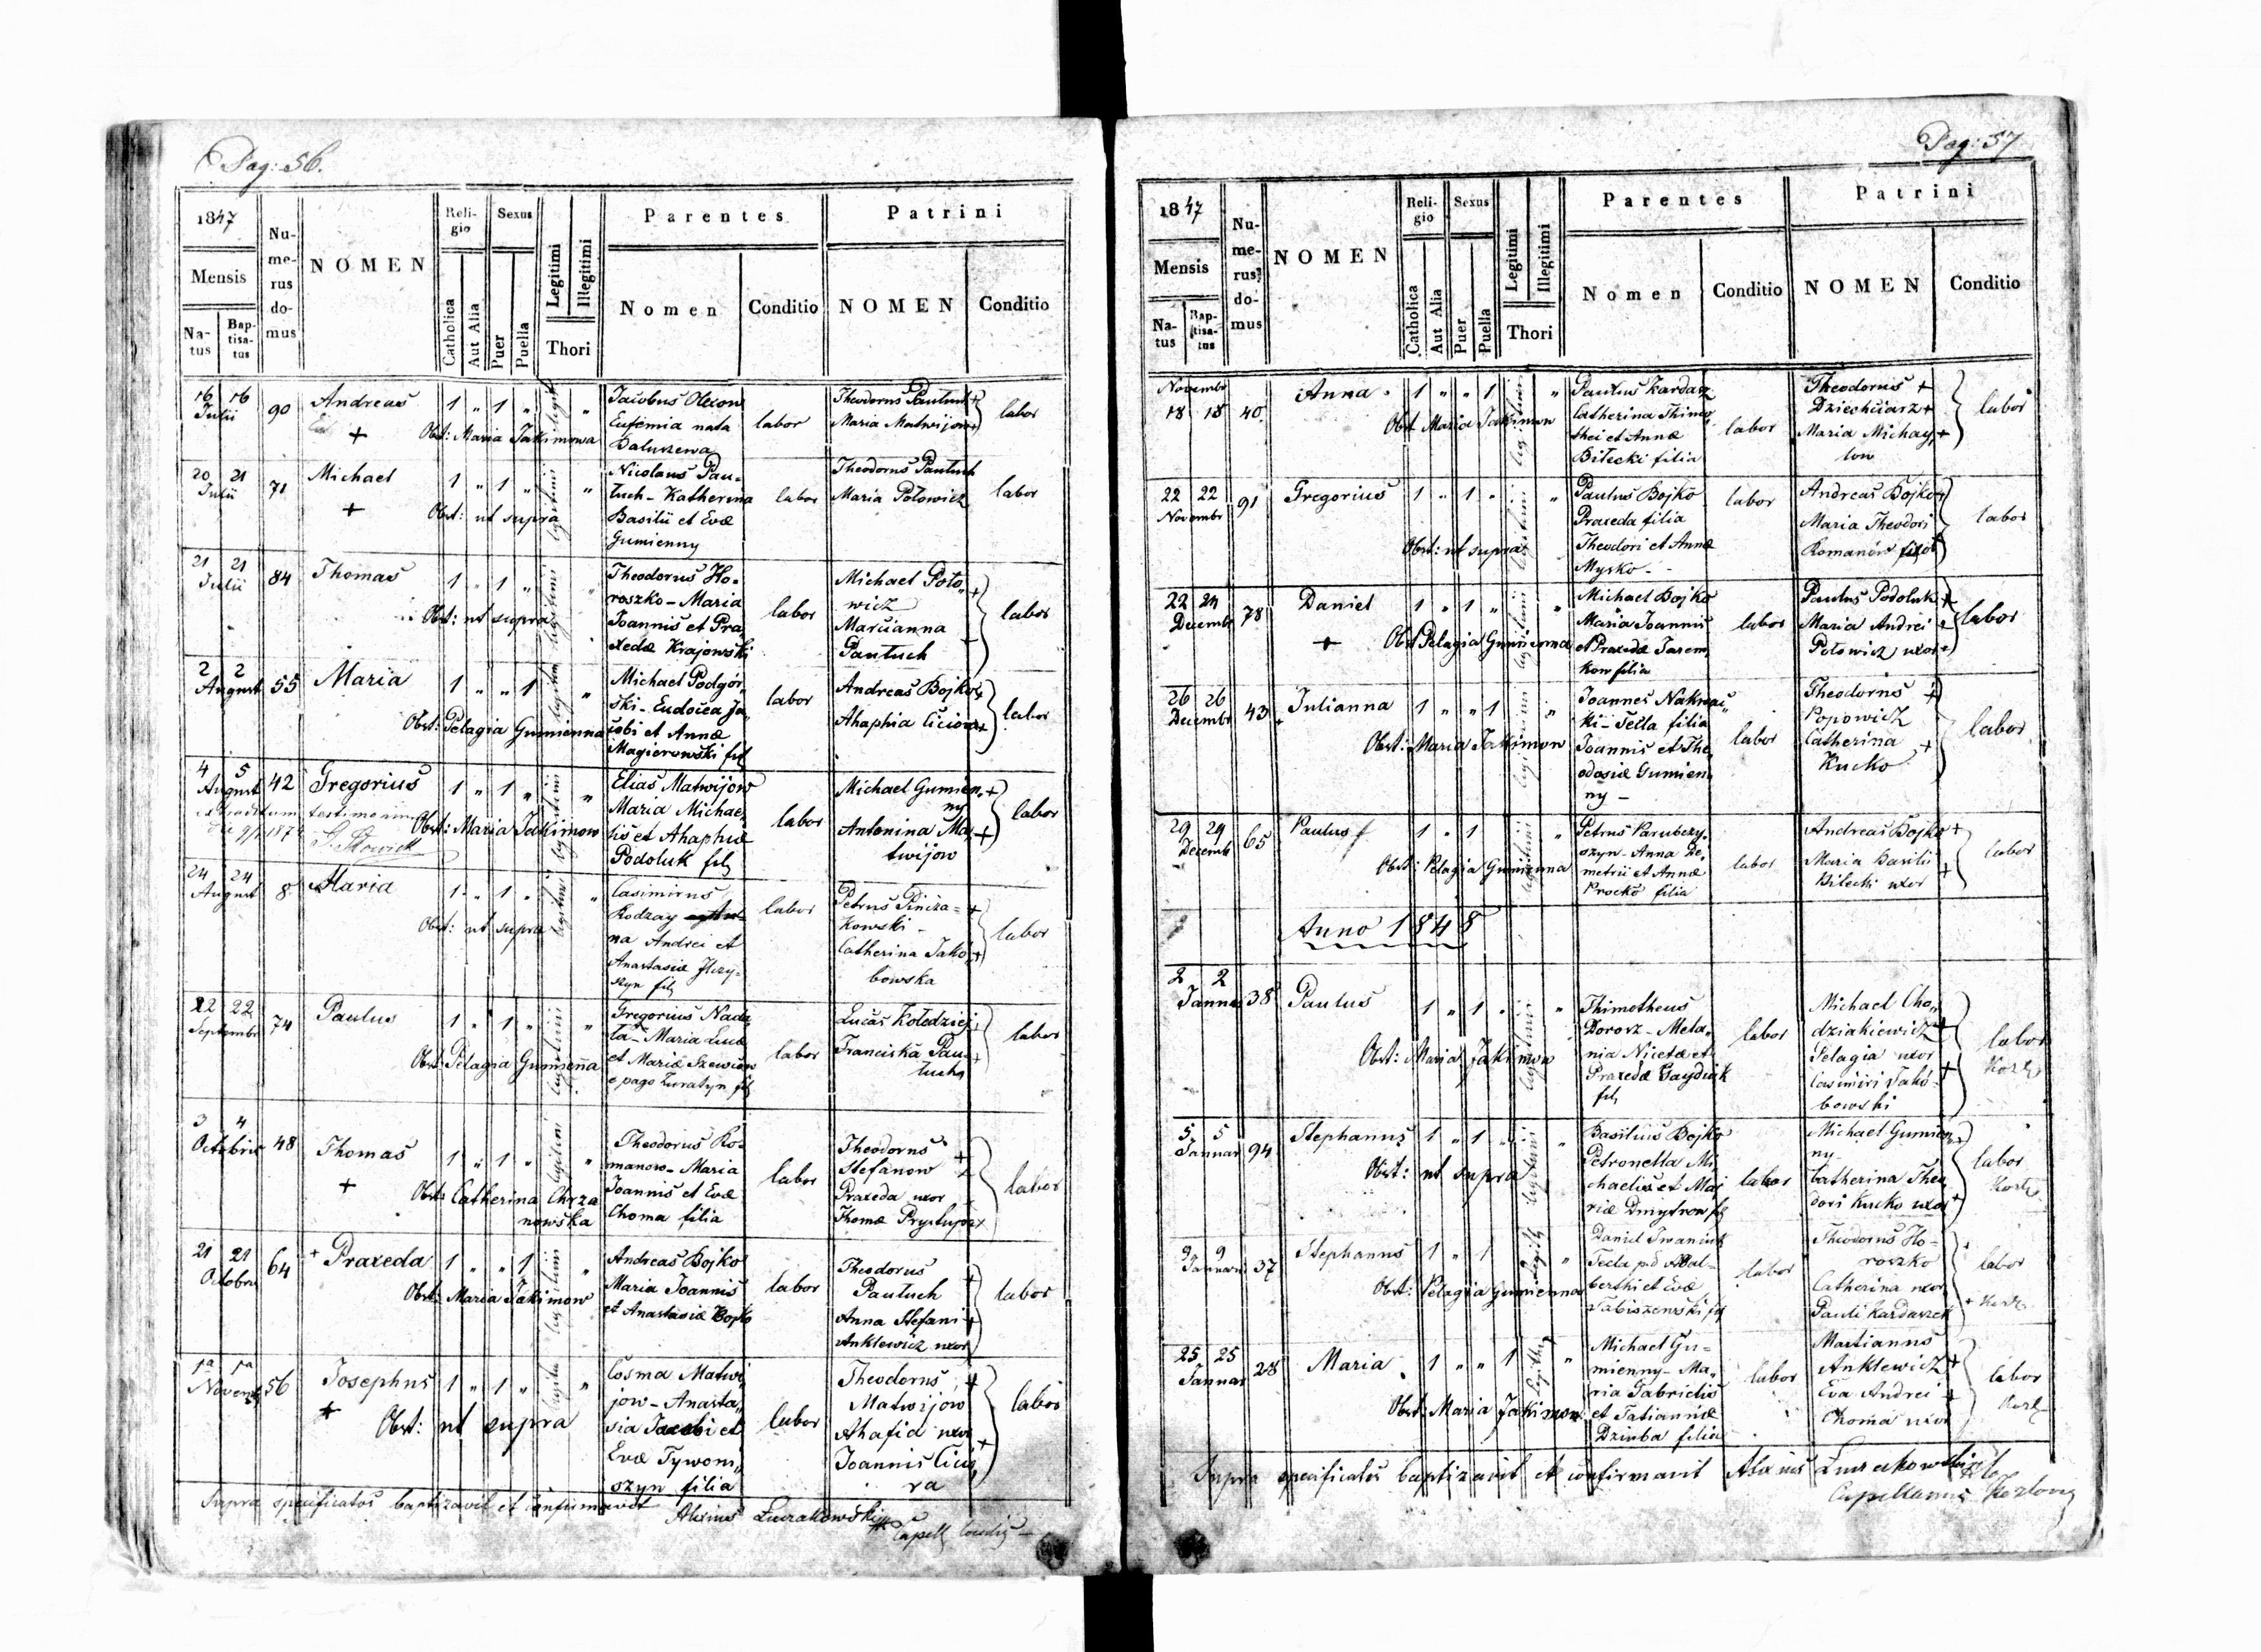 Pag: 56.
1847
Mensis
Na-
tus
Bap-
tisa-
tus
Nu-
me-
rus
do-
mus
NOMEN
Reli-
gio
Catholica
Aut Alia
Sexus
Puer
Puella
Legitimi
Illegitimi
Thori
Parentes
Nomen
Conditio
Patrini
NOMEN
Conditio
16 16
Julii
90
Andreas
+
1 " 1 " "
Obst: Maria Jakimowa
Jacobus Olexow
Eufemia nata
Baluszewa
labor
Theodorus Pautuch +
Maria Matwijow +
labor
20 21
Julii
71
Michael
+
1 " 1 " "
Obst: ut supra
legitimi
Nicolaus Pau-
tuch - Katherina
Basilii et Evæ
Gumienny
labor
Theodorus Pautuch
Maria Potowicz
labor
21 21
Julii
84
Thomas
1 " 1 " "
Obst: ut supra
legitimi
Theodorus Ho-
roszko - Maria
Joannis et Pra
xedæ Krajowski
labor
Michael Poto
wicz +
Marcianna
Pautuch +
labor
2 2
August
55
Maria
1 " " 1 "
Obst: Pelagia Gumienna
Michael Podgór
ski - Eudocia Ja
cobi et Annæ
Magierowski fil
labor
Andreas Bojko +
Ahaphia Ciciora +
labor
4 5
August
42
Gregorius
1 " 1 " "
testimonium
Obst: Maria Jakimow
legitimi
Elias Matwijow
Maria Michae
lis et Ahaphiæ
Podoluk fil
labor
Michael Gumien +
ny
Antonina Ma +
twijow
labor
24 24
August
8
Maria
1 " 1 " "
Obst: ut supra
legitimi
Casimirus
Rodzay
na Andrei et
Anastasiæ
fil
labor
Petrus
kowski -
Catherina Jakó +
bowska
labor
22 22
Septembr
74
Paulus
1 " 1 " "
Obst: Pelagia Gumienna
legitimi
Gregorius Nada
ta - Maria Lucæ
et Mariæ Szewciow
e pago Zuratyn fil
labor
Lucas Kołedziej
Franciska Pau +
tuch
labor
3 4
Octobris
48
Thomas
+
1 " 1 " "
Obst: Catherina Chrza
nowska
legitimi
Theodorus Ro-
manow - Maria
Joannis et Evæ
Choma filia
labor
Theodorus +
Stefanow
Praxeda uxor
Thomæ Prystupa
labor
21 21
Octobris
64
+ Praxeda
1 " " 1 "
Obst: Maria Jakimow
legitimi
Andreas Bojko
Maria Joannis
et Anastasiæ Bojko
labor
Theodorus +
Pautuch
Anna Stefani +
Anklewicz uxor
labor
1a 1a
Novemb
56
Josephus
+
1 " 1 " "
Obst: ut supra
Cosma Matwi
jow - Anasta
sia Jacobi et
Evæ Tywoni
szyn filia
labor
Theodorus +
Matwijow
Ahafia uxor
Joannis Cicio +
ra
labor
Supra specificatos baptizavit et confirmavit
Alexius Luczakowski
Capell
Pag: 57
1847
Mensis
Na-
tus
Bap-
tisa-
tus
Nu-
me-
rus
do-
mus
NOMEN
Reli-
gio
Catholica
Aut Alia
Sexus
Puer
Puella
Legitimi
Illegitimi
Thori
Parentes
Nomen
Conditio
Patrini
NOMEN
Conditio
Novembr
18 18
40
Anna
1 " " 1 "
Obst Maria Jakimow
legitimi
Paulus Kardasz
Catherina Thimo
thei et Annæ
Bilecki filia
labor
Theodorus +
Dziechciarz +
Maria Michay +
low
labor
22 22
Novembr
91
Gregorius
1 " 1 " "
Obst: ut supra
legitimi
Paulus Bojko
Praxeda filia
Theodori et Annæ
Mysko -
labor
Andreas Bojko +
Maria Theodori
Romanów
labor
22 24
Decembr
78
Daniel
+
1 " 1 " "
Obst Pelagia Gumienna
legitimi
Michael Bojko
Maria Joannis
et Praxedæ Jarem
kow filia
labor
Paulus Podoluk +
Maria Andrei
Potowicz uxor +
labor
26 26
Decembr
43
+ Julianna
1 " " 1 "
Obst: Maria Jakimow
legitimi
Joannes Nakwac
ki - Tecla filia
Joannis et The
odosiæ Gumien
ny -
labor
Theodorus +
Popowicz
Catherina +
Kucko
labor
29 29
Decemb
65
Paulus
1 " 1 "
Obst: Pelagia Gumienna
legitimi
Petrus Parubczy
szyn - Anna De
metrii et Annæ
Procko filia
labor
Andreas Bojko +
Maria Basilii
Bilecki uxor +
labor
Anno 1848
2 2
Januar
38
Paulus
1 " 1 " "
Obst: Maria Jakimow
legitimi
Thimotheus
Dorosz - Mela
nia Nicetæ et
Praxedæ Gayduk
fil
labor
Michael Cho
dziakiewicz +
Pelagia uxor
Casimiri Jakó +
bowski
labor
5 5
Januar
94
Stephanus
1 " 1 " "
Obst: ut supra
legitimi
Basilius Bojko
Petronella Mi
chaelis et Ma
riæ Dmytrow fil
labor
Michael Gumien +
ny
Catherina Theo
dori Kucko uxor +
labor
9 9
Januar
37
Stephanus
1 " 1 "
Obst: Pelagia Gumienna
Daniel Iwaniuk
Tecla Adal-
berthi et Evæ
Sabiszewski fil
labor
Theodorus Ho-
roszko
Catherina uxor
Pauli Kardaszek
labor
25 25
Januar
28
Maria
1 " " 1 "
Obst: Maria Jakimow
Michael Gu-
mienny - Ma
ria Gabrielis
et Tatiannæ
Dziuba filia
labor
Martianus
Anklewicz +
Eva Andrei +
Choma uxor
labor
Supra specificatos baptizavit et confirmavit Alexius Luczakowski
Capellanus